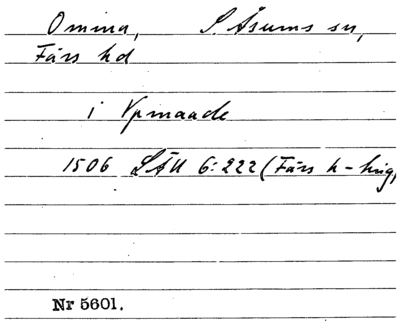 Omina, S. Åsums sn,
Färs hd
i Vpmaade
1506 LÄU 6:222 (Färs h-ting,
Nr 5601.